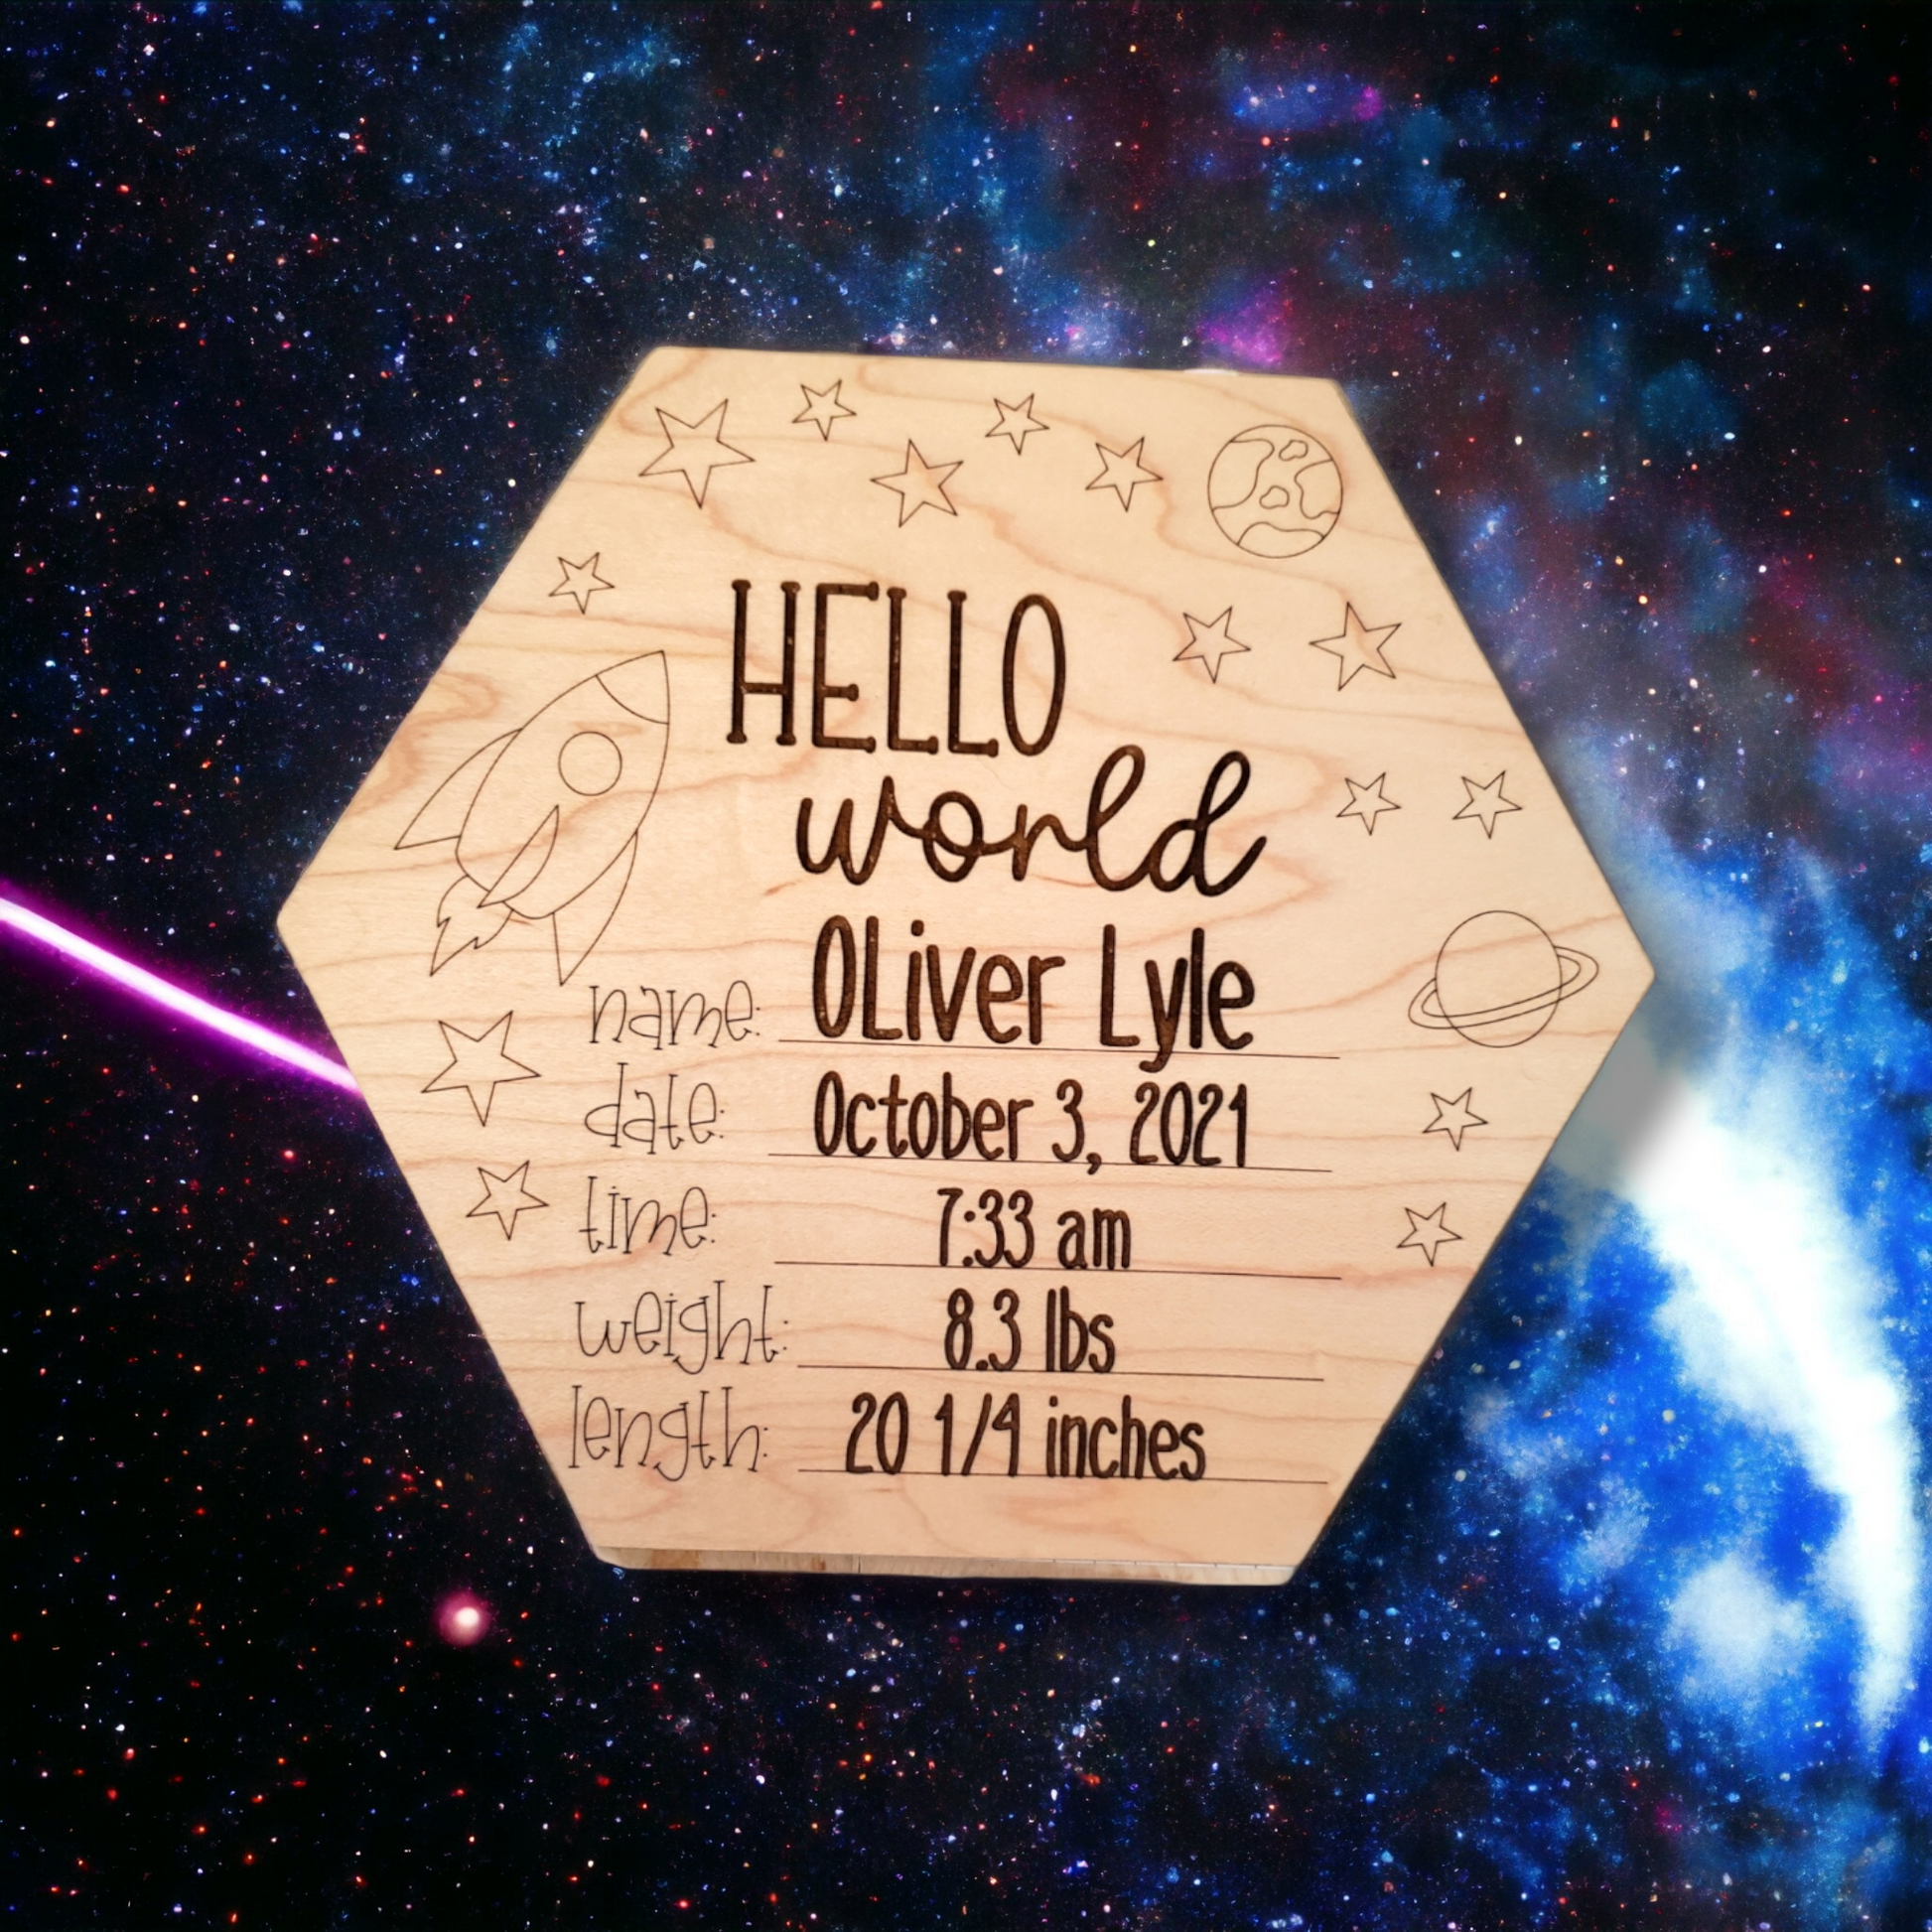 HELLO
world
name: OLiver Lyle
date: October 3, 2021
time: 7:33 am
weight: 8.3 lbs
length: 20 1/4 inches